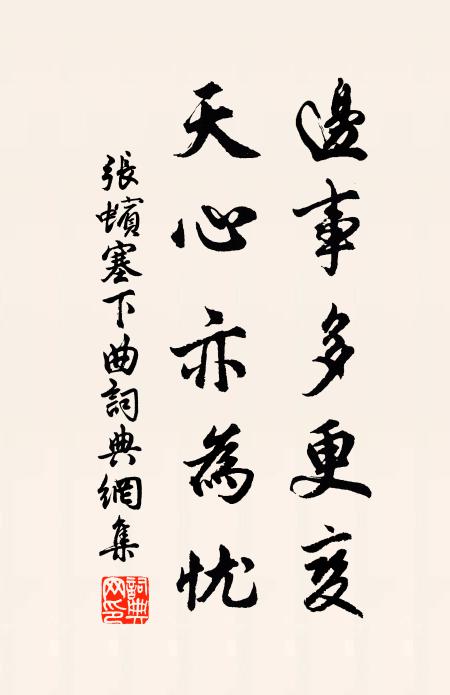 邊事多更变
天心亦為忧
張蠙塞下曲詞典網集
詞典
网印